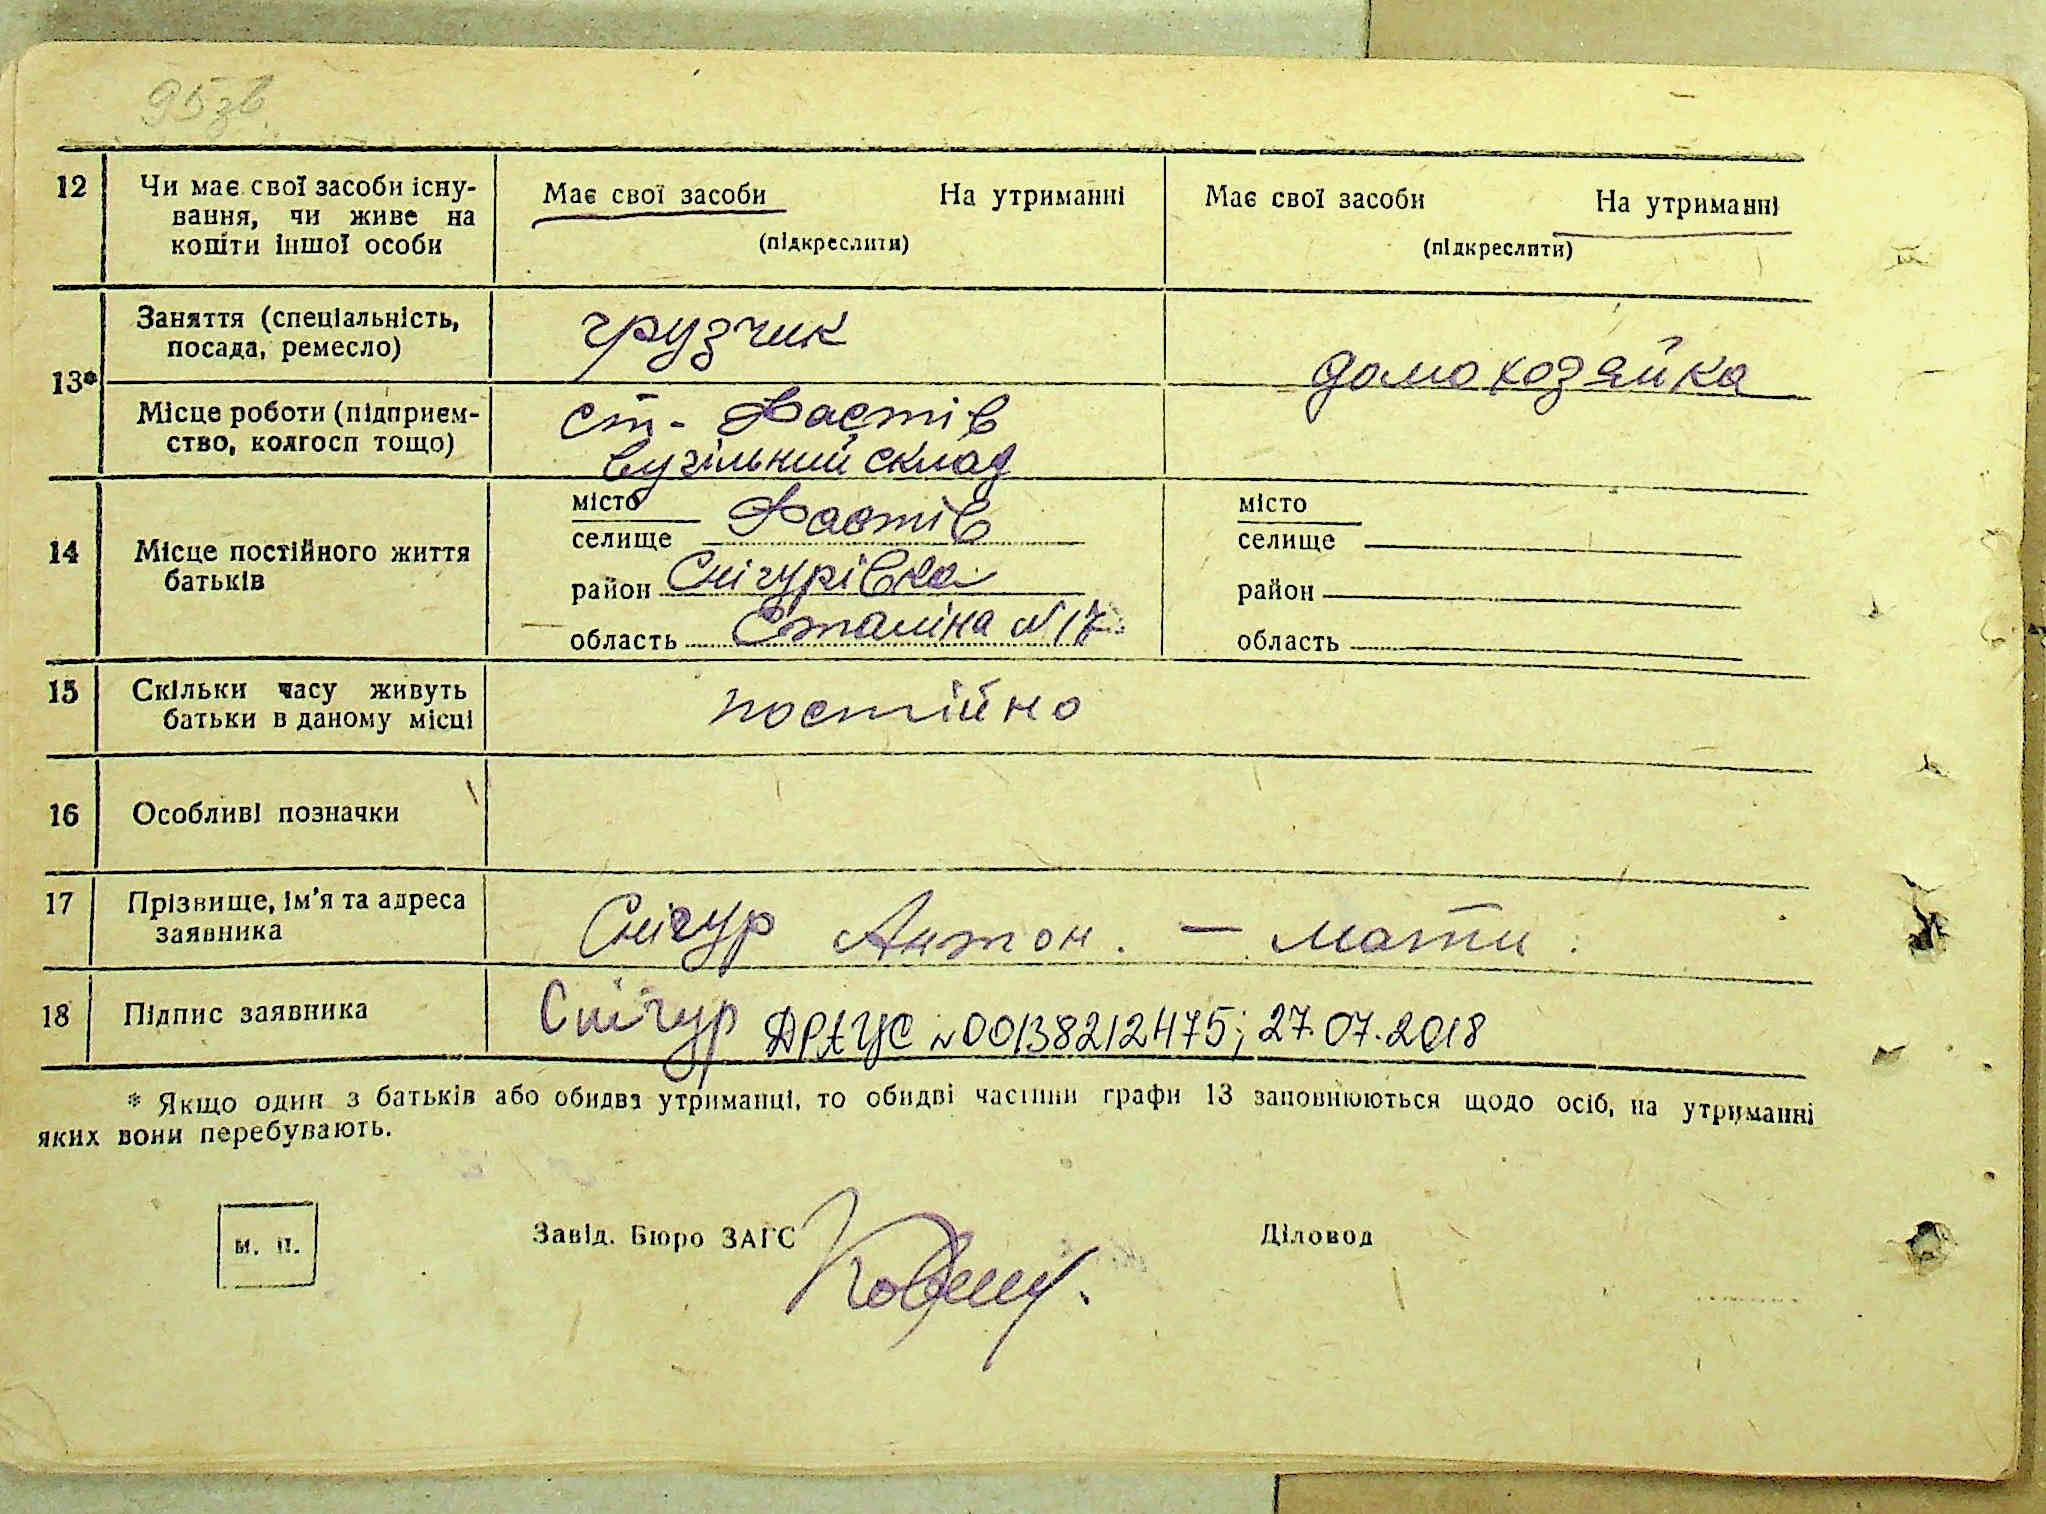 95зв
12 Чи має свої засоби існу- Має свої засоби На утриманні Має свої засоби На утриманні
вання, чи живе на
кошти іншої особи (підкреслити) (підкреслити)
Заняття (спеціальність, грузчик
посада, ремесло) домохозяйка
13*
Місце роботи (підприєм- ст. Фастів
ство, колгосп тощо) вугільний склад
місто Фастів місто
14 Місце постійного життя селище селище
батьків район Снігурівка район
область Сталіна №17 область
15 Скільки часу живуть постійно
батьки в даному місці
16 Особливі позначки
17 Прізвище, ім'я та адреса Снігур Антон. — мати.
заявника
18 Підпис заявника Снігур ДРАЦС №00138212475; 27.07.2018
* Якщо один з батьків або обидва утриманці, то обидві частини графи 13 заповнюються щодо осіб, на утриманні
яких вони перебувають.
М. П. Завід. Бюро ЗАГС Діловод